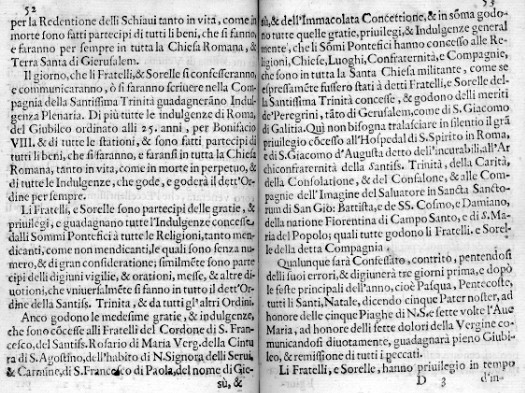 52
per la Redentione delli Schiaui tanto in vita, come in
morte sono fatti partecipi di tutti li beni, che si fanno,
e faranno per sempre in tutta la Chiesa Romana, &
Terra Santa di Gierusalem.
Il giorno, che li Fratelli, & Sorelle si confesseranno,
e communicaranno, ò si faranno scriuere nella Com-
pagnia della Santissima Trinità guadagneràno Indul-
genza Plenaria. Di più tutte le indulgenze di Roma,
del Giubileo ordinato alli 25. anni, per Bonifacio
VIII. & di tutte le stationi, & sono fatti partecipi di
tutti li beni, che si faranno, e faransi in tutta la Chiesa
Romana, tanto in vita, come in morte in perpetuo, &
di tutte le Indulgenze, che gode, e goderà il dett'Or-
dine per sempre.
Li Fratelli, e Sorelle sono partecipi delle gratie, &
priuilegi, e guadagnano tutte l'Indulgenze concesse
dalli Sommi Pontefici à tutte le Religioni, tanto men-
dicanti, come non mendicanti, le quali sono senza nu-
mero, & di gran consideratione; similmẽte sono parte
cipi delli digiuni vigilie, & orationi, messe, & altre di-
uotioni, che vniuersalmẽte si fanno in tutto il dett'Or-
dine della Santiss. Trinita, & da tutti gl'altri Ordini.
Anco godono le medesime gratie, & indulgenze,
che sono cõcesse alli Fratelli del Cordone di S. Fran-
cesco, del Santiss. Rosario di Maria Verg. della Cintu
ra di S. Agostino, dell'habito di N. Signora delli Serui,
& Carmine, di S. Francesco di Paola, del nome di Gie-
sù, &
53
sù, & dell'Immacolata Concettione, & in sõma godo-
no tutte quelle gratie, priuilegi, & Indulgenze general
mente, che li Sõmi Pontefici hanno concesso alle Re-
ligioni, Chiese, Luoghi, Confraternità, e Compagnie,
che sono in tutta la Santa Chiesa militante, come se
espressamẽte fussero stati à detti Fratelli, e Sorelle del-
la Santissima Trinità concesse, & godono delli meriti
de'Peregrini, tãto di Gerusalem, come di S. Giacomo
di Galitia. Quì non bisogna tralasciare in silentio il grã
priuilegio cõcesso all'Hospedal di S. Spirito in Roma,
e di S. Giacomo d'Augusta detto dell'incurabili, all'Ar
chiconfraternità della Santiss. Trinità, della Carità,
della Consolatione, & del Confalone, & alle Com-
pagnie dell'Imagine del Saluatore in Sancta Sancto-
rum di San Gio: Battista, e de SS. Cosmo, e Damiano,
della natione Fiorentina di Campo Santo, e di S. Ma-
ria del Popolo; quali tutte godono li Fratelli, e Sorel-
le della detta Compagnia.
Qualunque sarà Confessato, contrito, pentendosi
delli suoi errori, & digiunerà tre giorni prima, e dopò
le feste principali dell'anno, cioè Pasqua, Pentecoste,
tutti li Santi, Natale, dicendo cinque Pater noster, ad
honore delle cinque Piaghe di N. S. e sette volte l'Aue
Maria, ad honore delli sette dolori della Vergine co-
municandosi diuotamente, guadagnarà pieno Giubi-
leo, & remissione di tutti i peccati.
Li Fratelli, e Sorelle, hanno priuilegio in tempo
D 3 d'in-